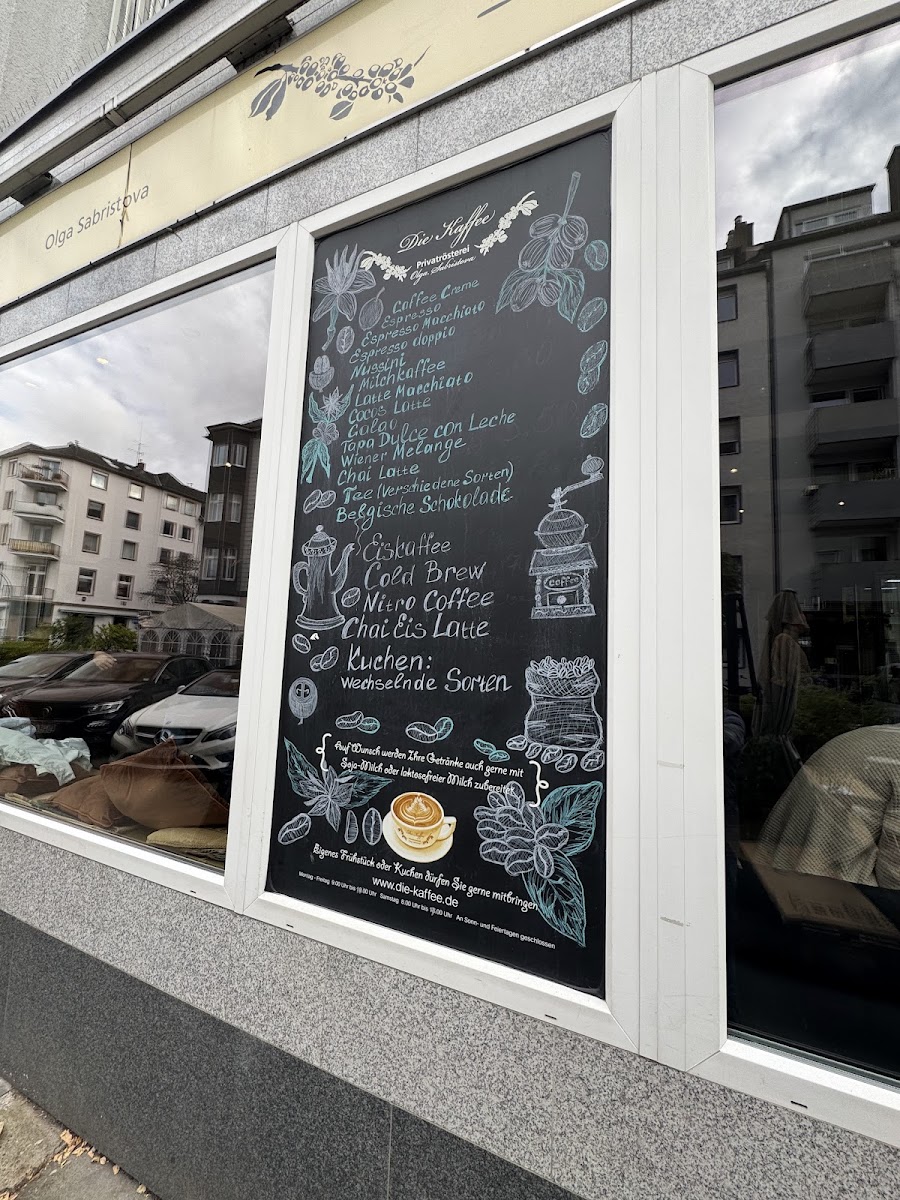 Olga Sabristova
Die Kaffee
Privatrösterei
Olga Sabristova
Caffee Creme
Espresso
Espresso Macchiato
Espresso doppio
Nussini
Milchkaffee
Latte Macchiato
Cocos Latte
Galao
Tapa Dulce con Leche
Wiener Melange
Chai Latte
Tee (Verschiedene Sorten)
Belgische Schokolade
Eiskaffee
Cold Brew
Nitro Coffee
Chai Eis Latte
coffee
Kuchen:
wechselnde Sorten
Auf Wunsch werden Ihre Getränke auch gerne mit
Soja-Milch oder laktosefreier Milch zubereitet
Eigenes Frühstück oder Kuchen dürfen Sie gerne mitbringen
www.die-kaffee.de
Montag - Freitag Uhr bis Uhr Samstag Uhr bis Uhr An Sonn- und Feiertagen geschlossen